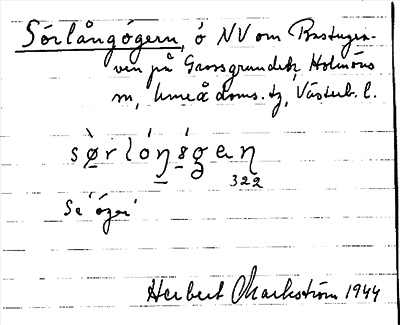 Sörlångögern, ö NV om Bastugru-
ven på Grossgrundet, Holmöns
sn, Umeå doms. tg, Västerb. l.
sø̀rlóŋøgeɳ
322
Se 'öger'
Herbert Markström 1944